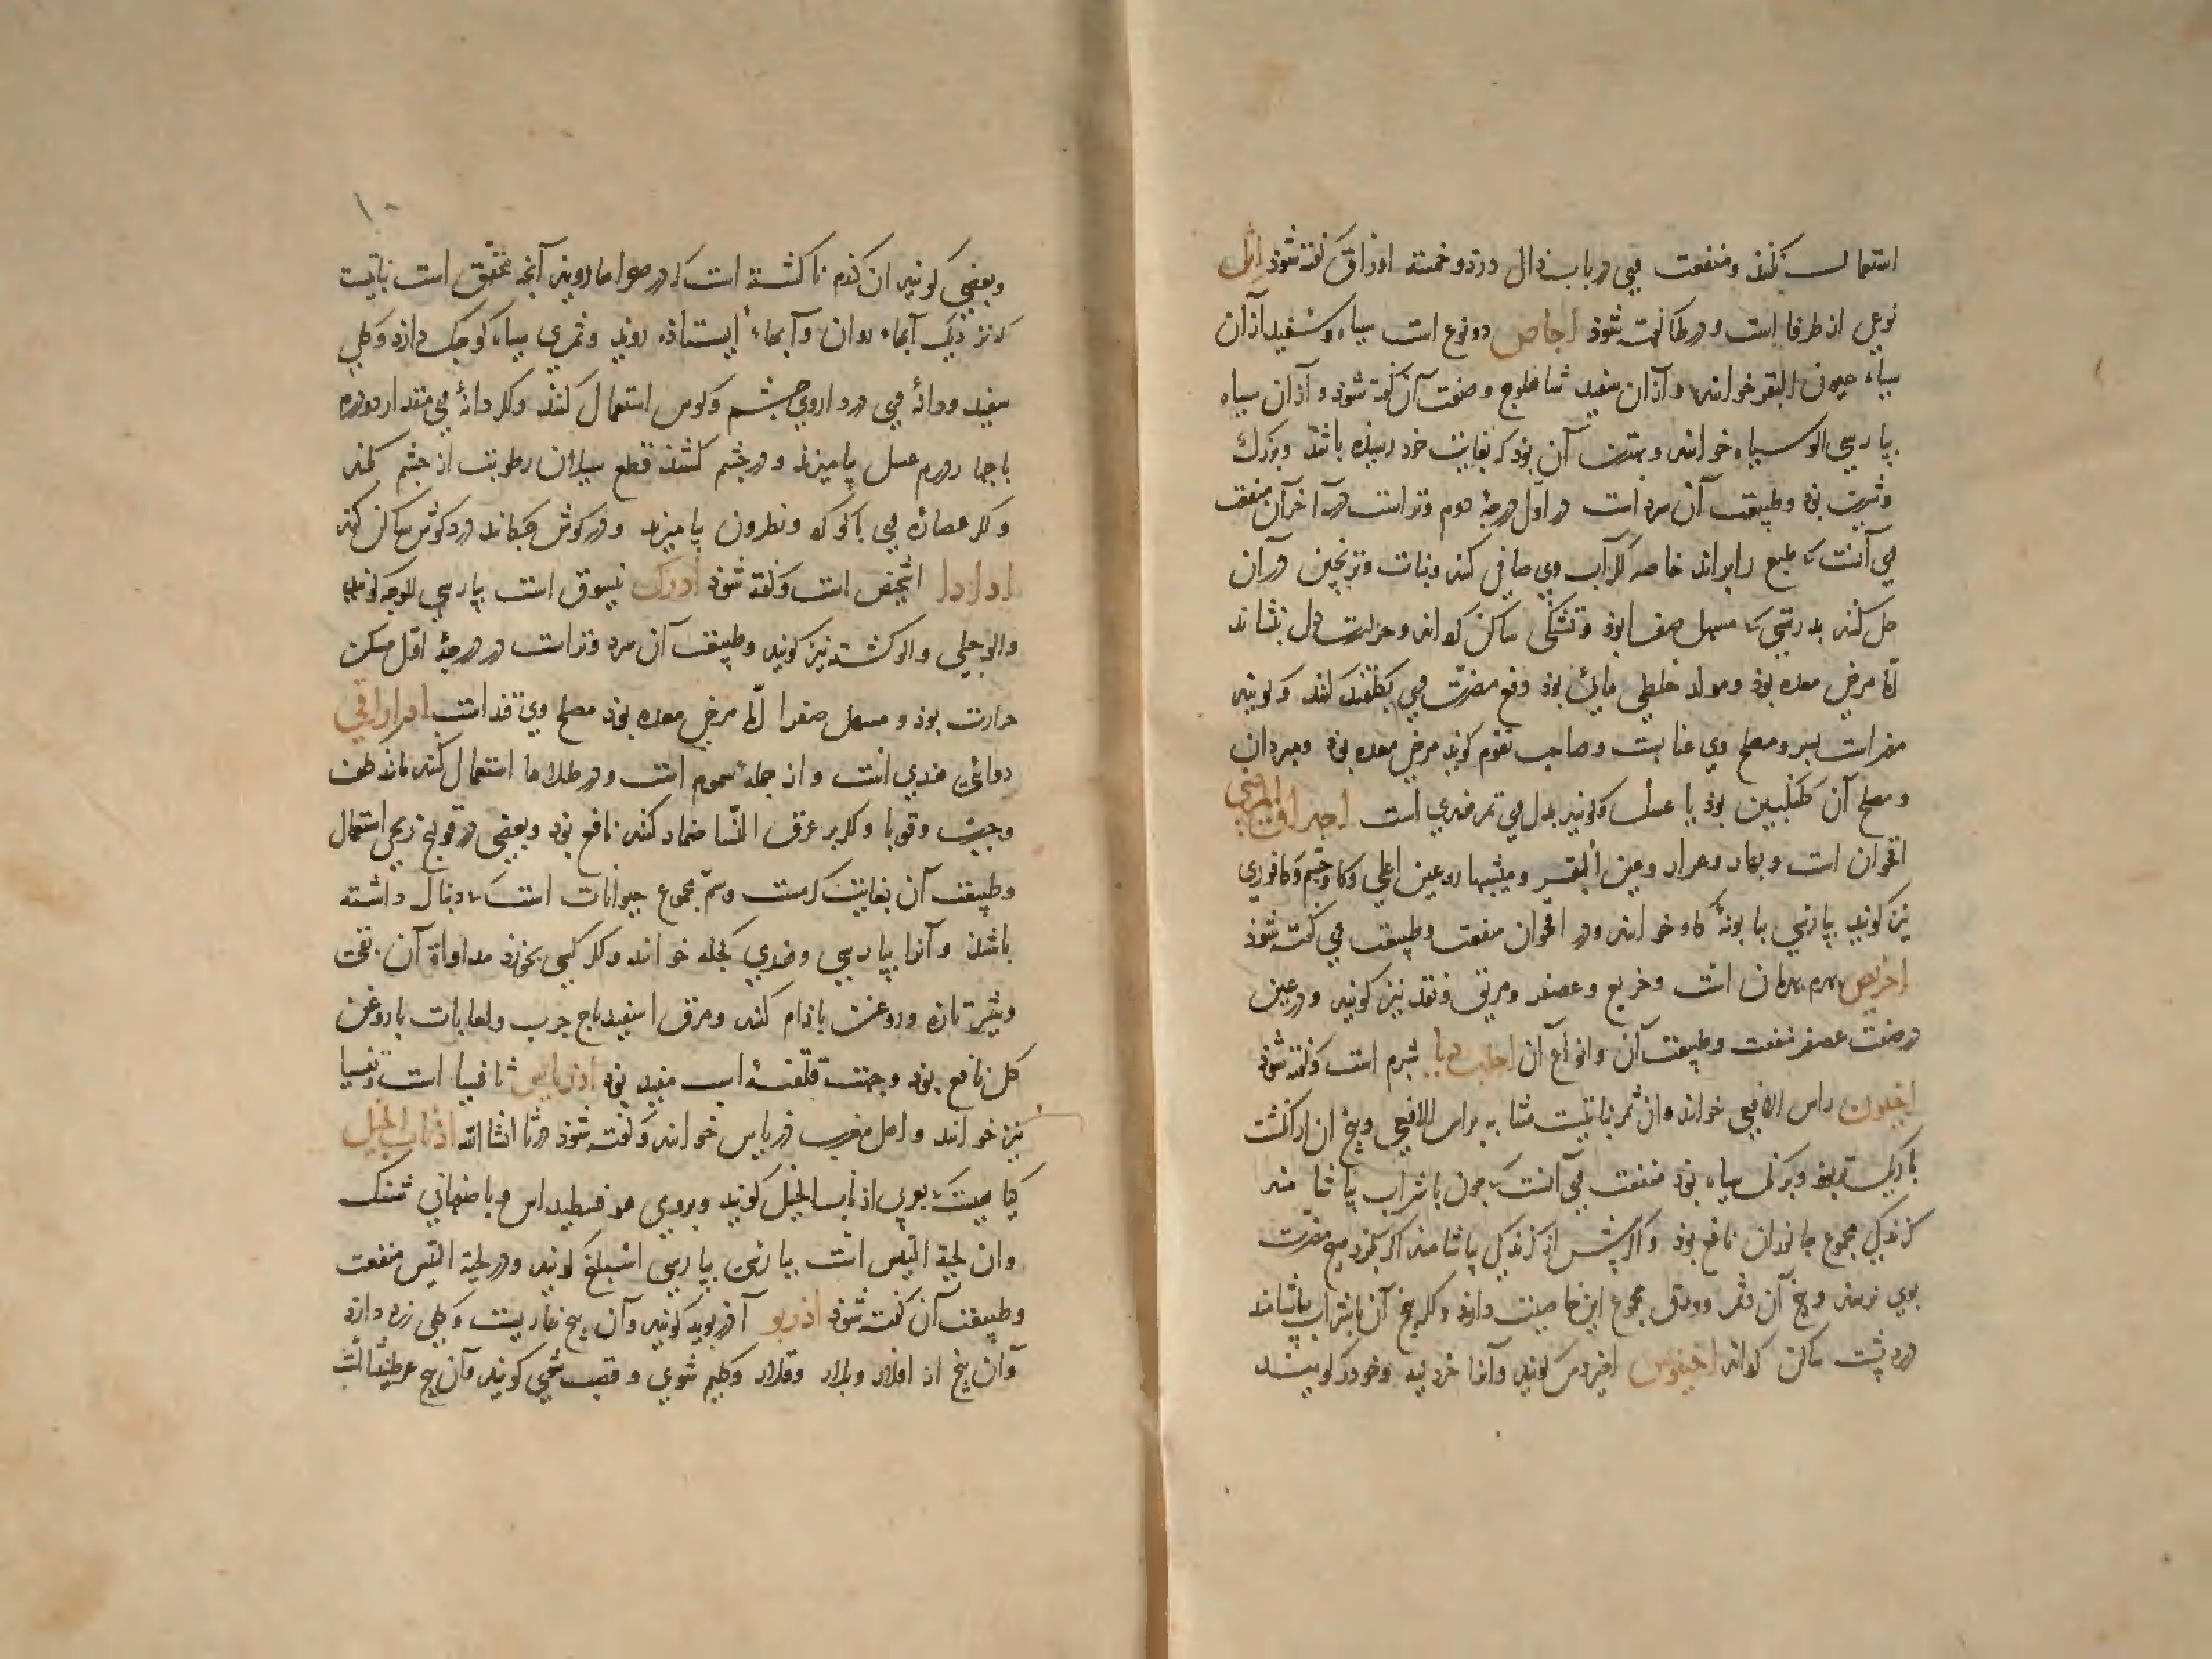 استعمال کنند و منفعت وی در باب ذال در ذو خمسة اوراق گفته شوذ اثل
نوعی از طرفا است و در طا گفته شوذ اجاص دو نوع است سیاه و سفید از آن
سیاه عیون البقر خوانند و از آن سفید شاهلوج و صفت آن گفته شوذ و از آن سیاه
بپارسی الو سیاه خوانند و بهترین آن بوذ که بغایت خود رسیده باشد و بزرگ
و شیرین بوذ و طبیعت آن سرد است در اول درجۀ دوم و تر است در آخر آن منفعت
وی آنست که طبع را براند خاصه که آب وی صافی کنند و نبات و ترنجبین در آن
حل کنند بدرستی که مسهل صفرا بوذ و تشنگی ساکن گرداند و حرارت دل بنشاند
امّا مرخی معده بوذ و مولد خلطی مائی بوذ دفع مضرّت وی بگلقند کنند و گویند
مضر است بسر و مصلح وی عنابست و صاحب تقویم گوید مرخی معده بوذ و مبردان
و مصلح آن گلنگبین بوذ یا عسل و گویند بدل وی تمر هندی است احداق المرضی
اقحوان است و بهار و عرار و عین البقر و مقبهار و عین اعلی و کاوچشم و کافوری
نیز گویند بپارسی بابونۀ گاو خوانند و در اقحوان منفعت و طبیعت وی گفته شوذ
اخریض بهرمان است و خریع و عصفر و مریق و نقد نیز گویند و در عین
در صفت عصفر منفعت و طبیعت آن و انواع آن شبرم است و گفته شوذ
اخیون راس الافعی خوانند و ان ثمر نباتیست مشابه براس الافعی و بیخ ان از انگشت
باریکتر بوذ و برنگ سیاه بوذ منفعت وی آنست که چون با شراب بیاشامند
گزندگی مجموع جانوران نافع بوذ و اگر پیش از گزندگی بیاشامند اگر بگزد هیچ مضرت
بوی نرسد و بیخ آن و ثمر و ورق مجموع این خاصیت دارند و اگر بیخ آن با شراب بیاشامند
درد پشت ساکن گرداند اخینوس اخیروس گویند و آنرا خردید و خودرک گویند
۱۰
و بعضی گویند ان گندم ناکشته است که در صحراها روید آنچه محقق است نباتیست
که نزدیک آبهاء روان و آبهاء ایستاذه روید و ثمری سیاه کوچک دارد و گلی
سفید و دانۀ وی در داروی چشم و گوش استعمال کنند و اگر دانۀ وی مقدار دو درم
با چهار درم عسل بیامیزند و در چشم کشند قطع سیلان رطوبت از چشم بکند
و اگر عصارۀ وی با گوگرد و نطرون بیامیزند و در گوش چکانند درد گوش ساکن کند
ادادا اشخیص است و گفته شوذ ادرک نیسوق است بپارسی الوجه گویند
و الو جبلی و الو کشته نیز گویند و طبیعت آن سرد و تر است در درجۀ اول مسکن
حرارت بوذ و مسهل صفرا امّا مرخی معده بوذ مصلح وی قند است ادرارافی
دوائی هندی است و از جمله سموم است و در طلاها استعمال کنند مانند کلف
و جرب و قوبا و اگر بر عرق النسا ضماد کنند نافع بوذ و بعضی در قولنج ریحی استعمال
و طبیعت آن بغایت گرمست و سمّ مجموع حیوانات است که دنبال داشته
باشند و آنرا بپارسی و هندی کجله خوانند و اگر کسی بخورد مداواة آن بقی
و شیر تازه و روغن باذام کنند و مرق اسفیدباج چرب و لعابات با روغن
گل نافع بوذ و جهت قلقت اسب مفید بوذ اذریاس ثافسیا است و تفسیا
نیز خوانند و اهل مغرب دریاس خوانند و گفته شوذ در ثا انشا الله اذناب الخیل
گیاهیست بعربی اذناب الخیل گویند و برومی هوفسطیداس و باصفهانی شنگ
و ان لحیة التیس است بپارسی اسبلنج گویند و در لحیة التیس منفعت
و طبیعت آن گفته شوذ اذربو آذربویه گویند و آن بیخ خاریست و گلی زرد دارد
و آن بیخ را گلیم شوی و قصب گویند و آن بیخ عرطنیثا است